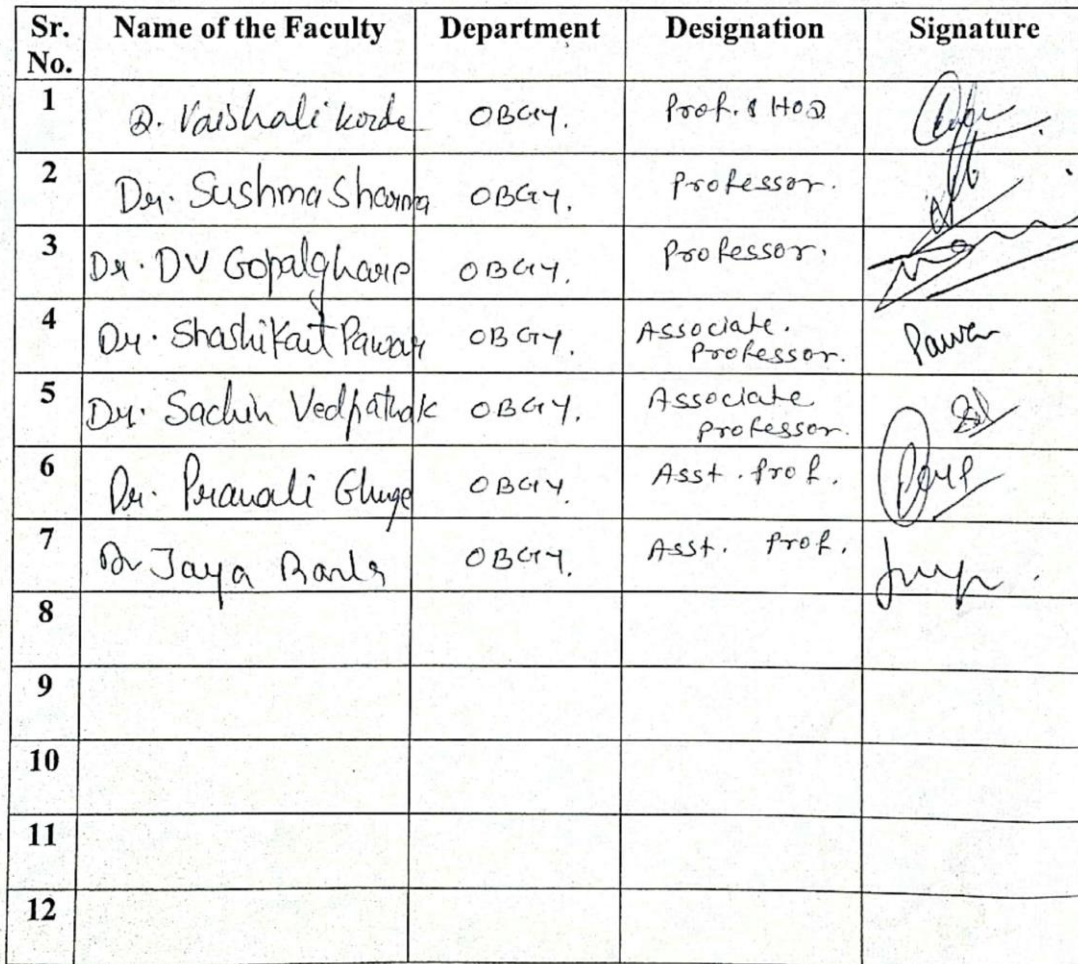 Sr. No. Name of the Faculty Department Designation Signature
1 Dr. Vaishali Korde OBGY. Prof. & HOD
2 Dr. Sushma Sharma OBGY. Professor.
3 Dr. DV Gopalghare OBGY. Professor.
4 Dr. Shashikant Pawar OBGY. Associate. Professor. Pawar
5 Dr. Sachin Vedpathak OBGY. Associate Professor.
6 Dr. Pranali Ghuge OBGY. Asst. Prof.
7 Dr Jaya OBGY. Asst. Prof.
8
9
10
11
12